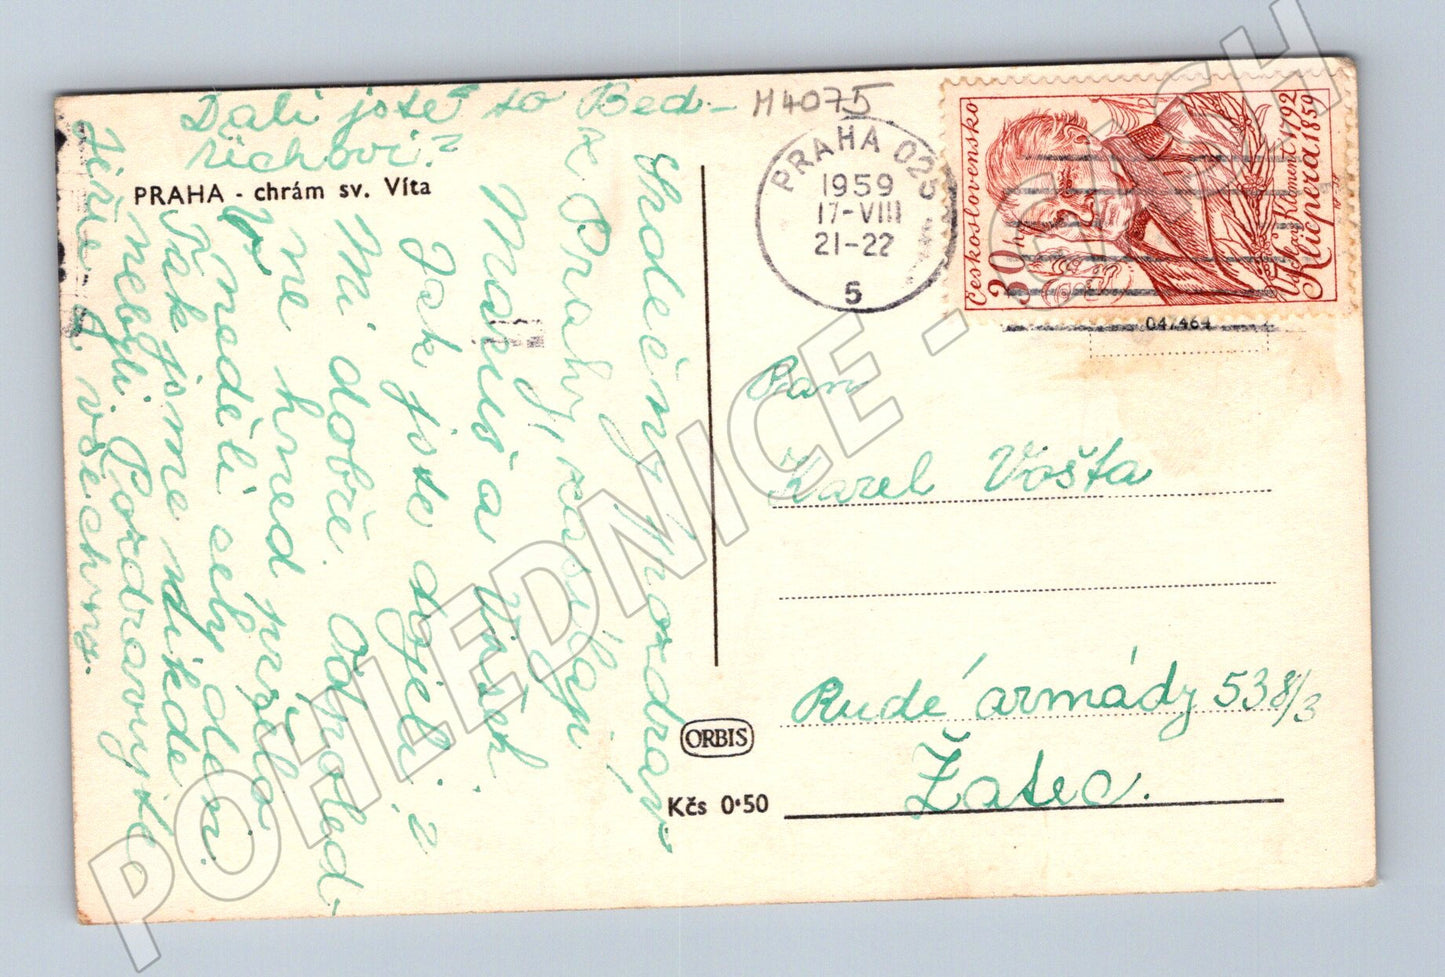 Dali jste to Bed-
řichovi?
M4075
PRAHA - chrám sv. Víta
Srdečný pozdrav
z Prahy, zasílají
Manis a Vršek
Jak jste dojeli?
Mi dobře. Odpoled-
ne hned pršelo
V neděli cely den
Tak jsme nikde
nebyli. Pozdravujte
Jiře a všechny.
PRAHA 025
1959
17-VIII
21-22
5
Československo
30h
Václav Kliment
Klicpera
1792
1859
047464
Pan
Karel Vošta
Rudé armády 538/3
Žatec.
ORBIS
Kčs 0·50
POHLEDNICE - CZECH